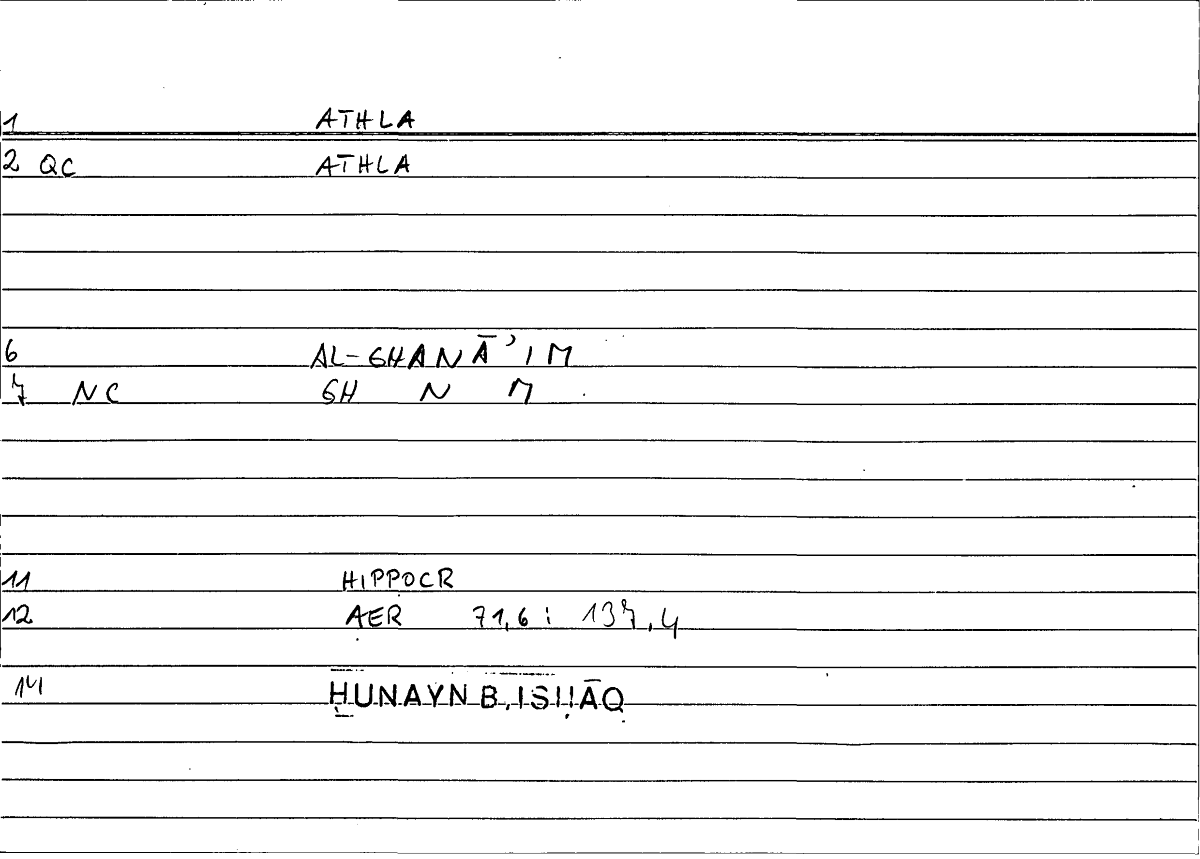 1 ATHLA
2 QC ATHLA
6 AL-GHANĀʾIM
7 NC GH N M
11 HIPPOCR
12 AER 71,6 : 137,4
14 ḤUNAYN B. ISḤĀQ